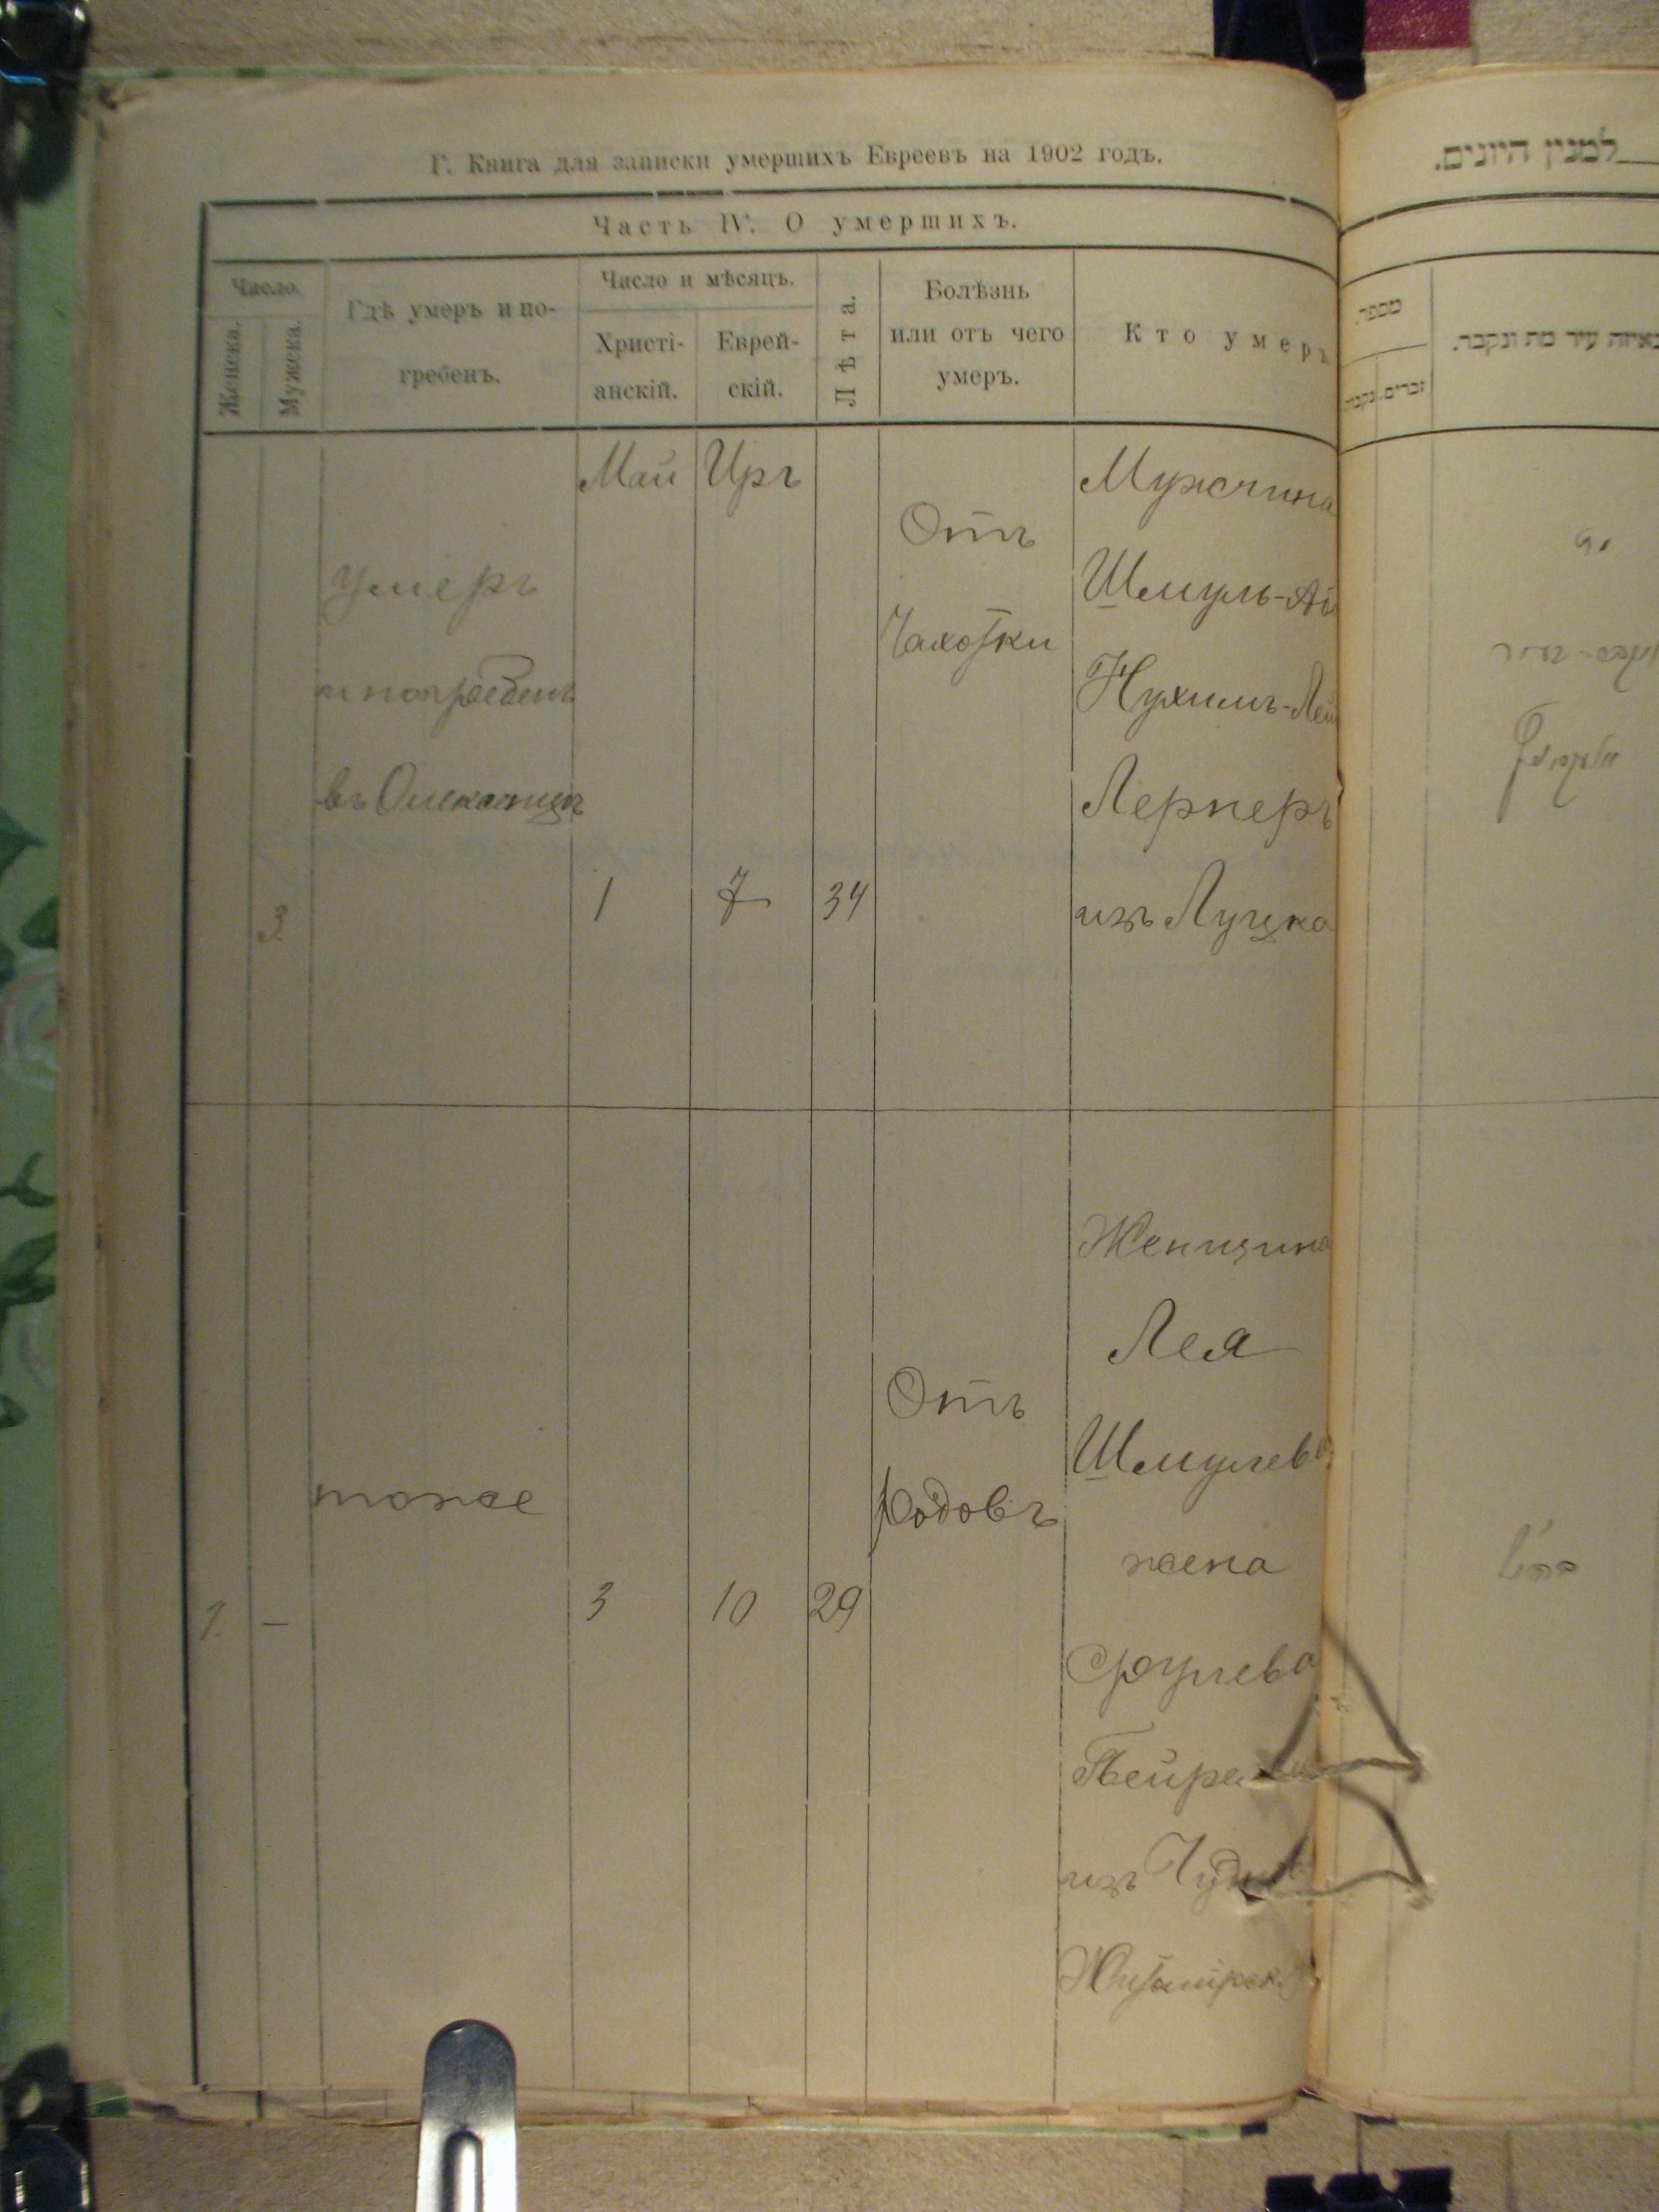 Г. Книга для записки умершихъ Евреевъ на 1902 годъ.
Часть IV. О умершихъ.
Число.
Женска.
Мужска.
Гдѣ умеръ и по-
гребенъ.
Число и мѣсяцъ.
Христі-
анскій.
Еврей-
скій.
Лѣта.
Болѣзнь
или отъ чего
умеръ.
Кто умеръ
Май
Иръ
3.
умеръ
и погребенъ
1
7
34
Отъ
Чахотки
Мужчина
Шмуль-
Нухимъ-
Лернеръ
изъ Луцка
1.
—
тоже
3
10
29
Отъ
Родовъ
Женщина
Лея
Шмулева
жена
Срулева
изъ
למנין היונים.
מספר.
זכרים.
נקבות
באיזה עיר מת ונקבר.